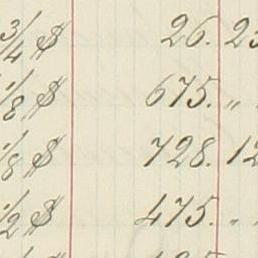 3/4 $ 26. 25
1/8 $ 675. " "
1/8 $ 728. 12
1/2 $ 475. " "